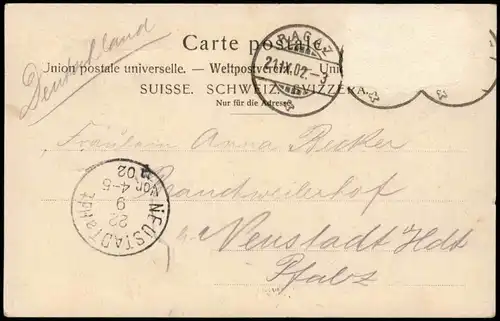 Carte postale.
Union postale universelle. — Weltpostverein. — Uni
SUISSE. SCHWEIZ. SVIZZERA.
Nur für die Adresse
Deutschland
RAGAZ
21.IX.02.-3
Fräulein Anna Becker
Branchweilerhof
Neustadt Hdt
Pfalz
NEUSTADT a/Hdt
22
9
Vor 4-5
02